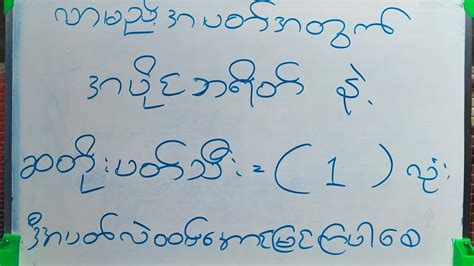 လာမည့်အပတ်အတွက်
အပိုင်အရိတ် နဲ့
ဆတိုးပတ်သီး = ( 1 ) လုံး
ဒီအပတ်လဲထပ်အောင်မြင်ကြပါစေ